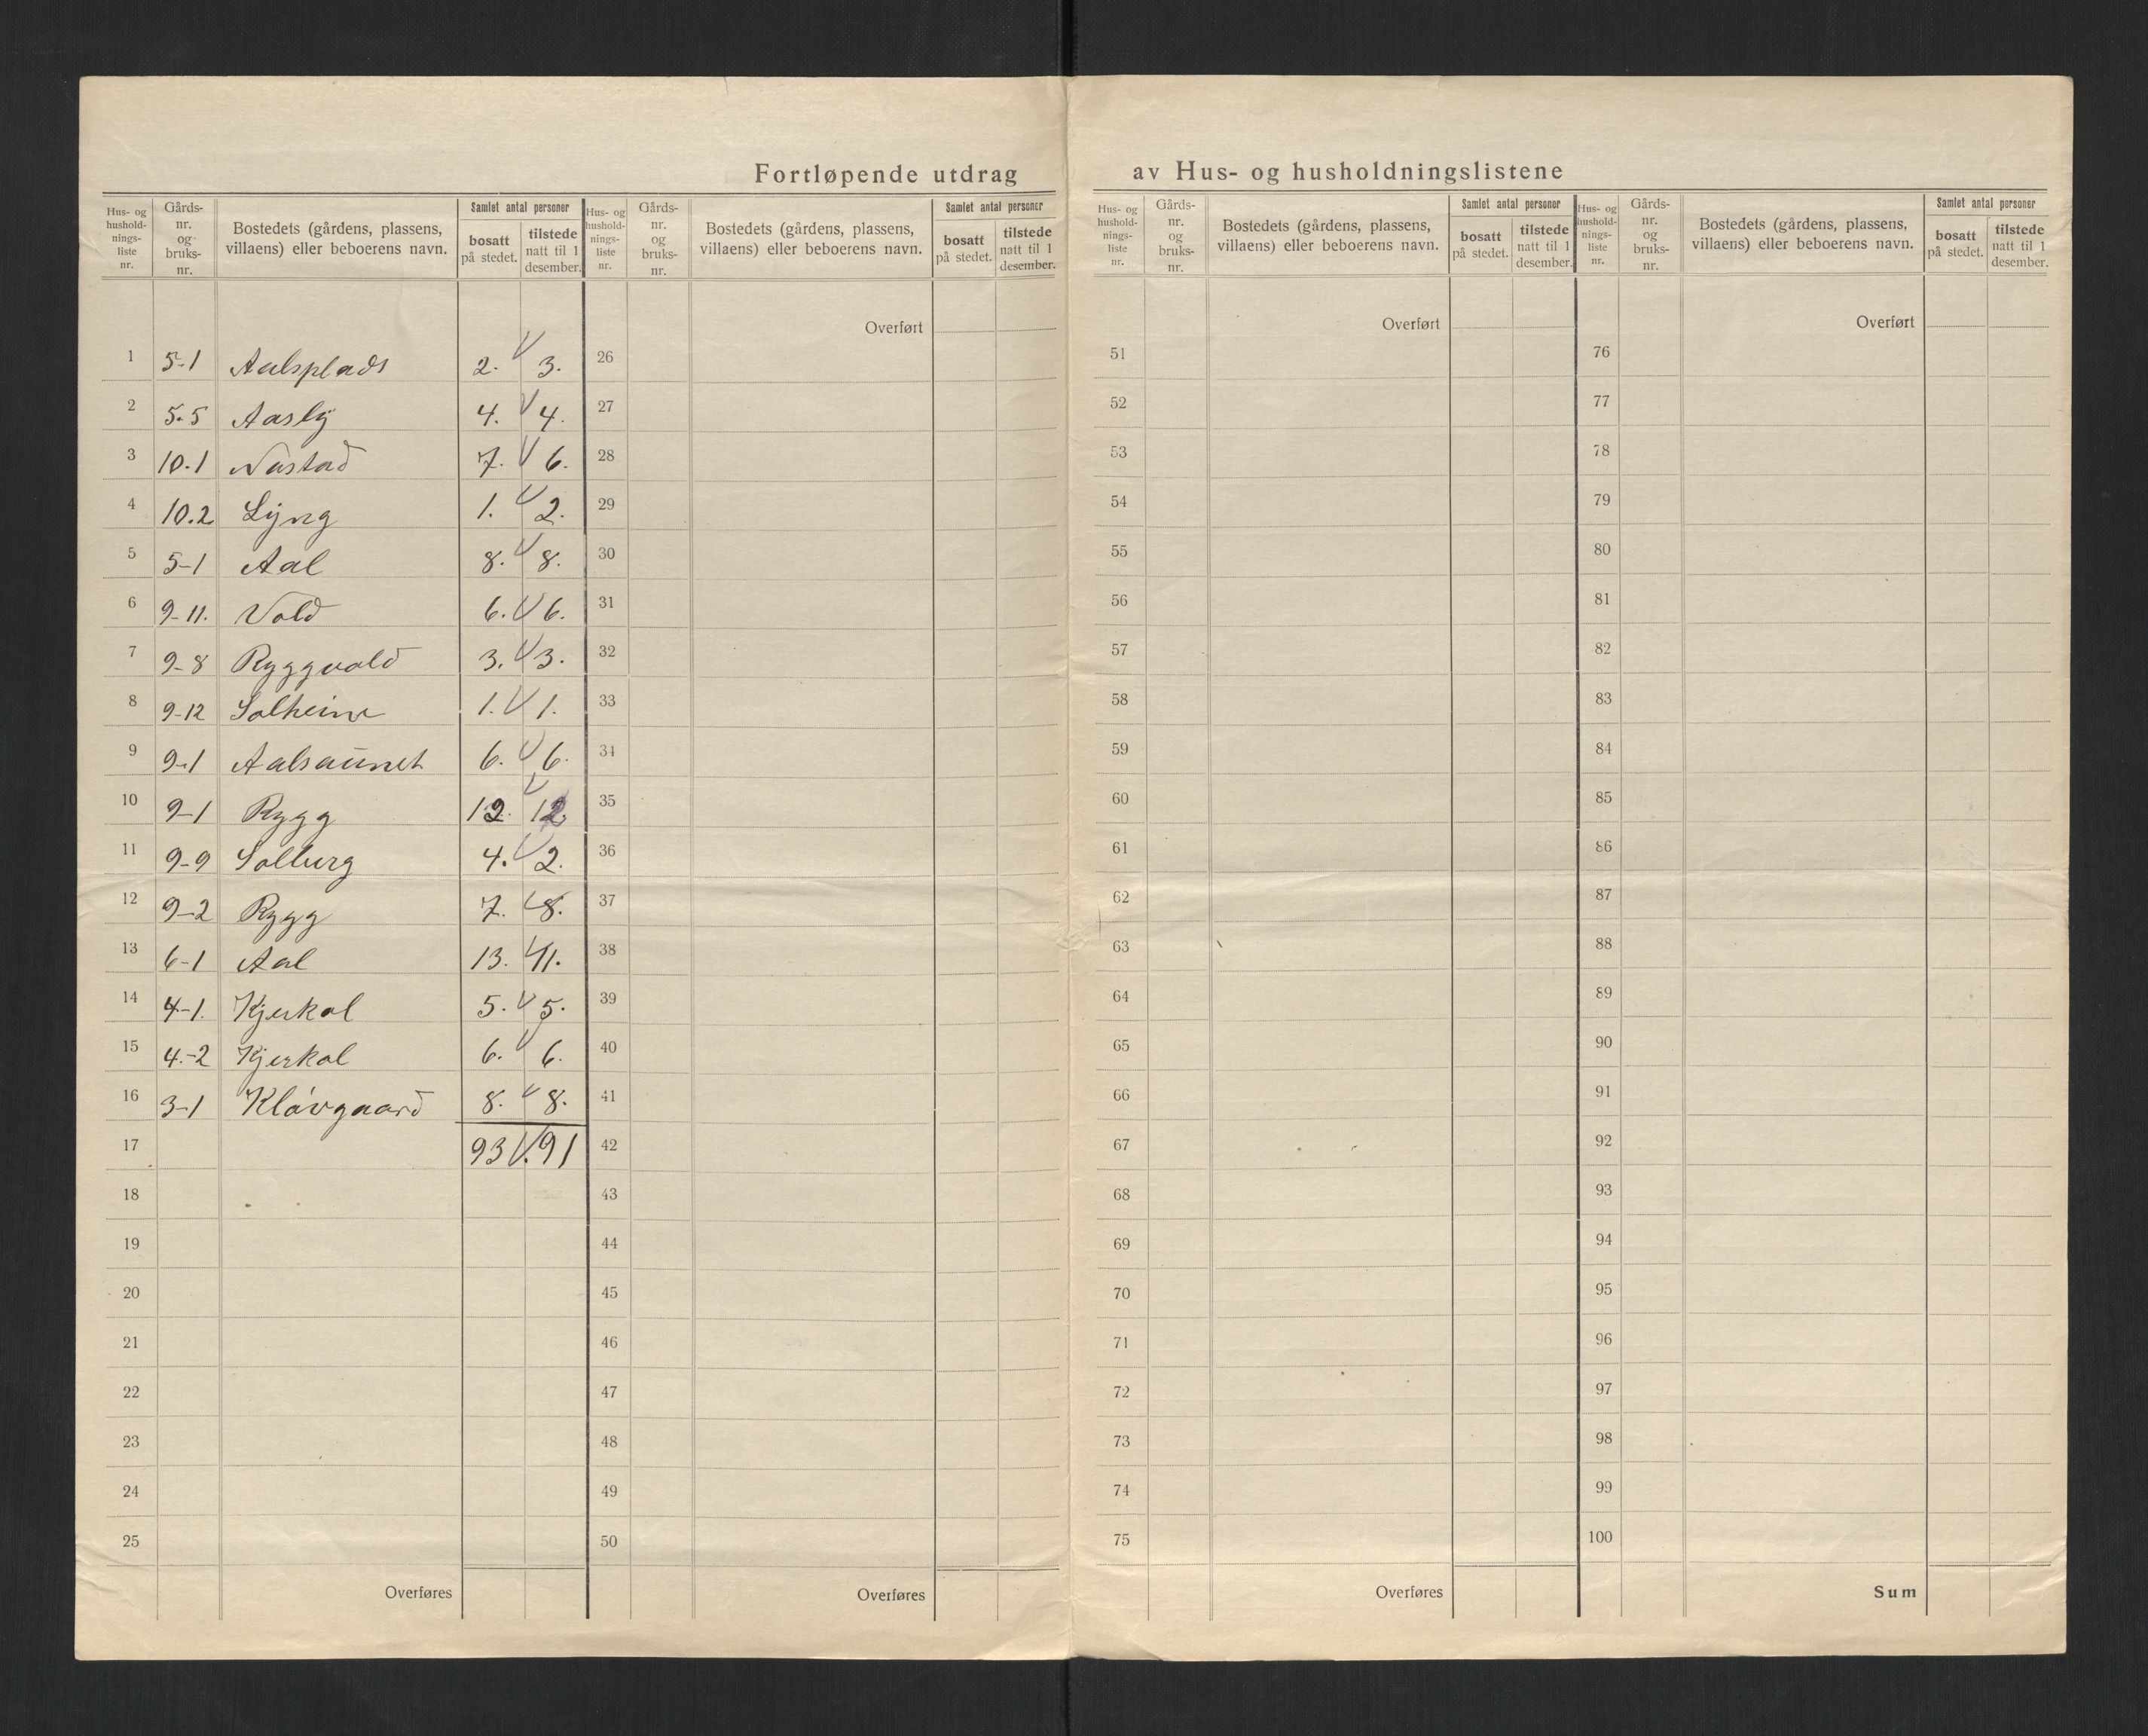 Fortløpende utdrag av Hus- og husholdningslistene
Hus- og hushold-nings-liste nr. Gårds-nr. og bruks-nr. Bostedets (gårdens, plassens, villaens) eller beboerens navn. Samlet antal personer bosatt på stedet. tilstede natt til 1 desember.
1 5-1 Aalsplads 2. 3.
2 5.5 Aasly 4. 4.
3 10.1 Nastad 7. 6.
4 10.2 Lyng 1. 2.
5 5-1 Aal 8. 8.
6 9-11. Vold 6. 6.
7 9-8 Ryggvold 3. 3.
8 9-12 Solheim 1. 1.
9 9-1 Aalsaunet 6. 6.
10 9-1 Rygg 12. 12
11 9-9 Solberg 4. 2.
12 9-2 Rygg 7. 8.
13 6-1 Aal 13. 11.
14 4-1. Kjerkol 5. 5.
15 4.-2 Kjerkol 6. 6.
16 3-1 Kløvgaard 8. 8.
17 93 91
18
19
20
21
22
23
24
25
Overføres
Hus- og hushold-nings-liste nr. Gårds-nr. og bruks-nr. Bostedets (gårdens, plassens, villaens) eller beboerens navn. Samlet antal personer bosatt på stedet. tilstede natt til 1 desember.
Overført
26
27
28
29
30
31
32
33
34
35
36
37
38
39
40
41
42
43
44
45
46
47
48
49
50
Overføres
Hus- og hushold-nings-liste nr. Gårds-nr. og bruks-nr. Bostedets (gårdens, plassens, villaens) eller beboerens navn. Samlet antal personer bosatt på stedet. tilstede natt til 1 desember.
Overført
51
52
53
54
55
56
57
58
59
60
61
62
63
64
65
66
67
68
69
70
71
72
73
74
75
Overføres
Hus- og hushold-nings-liste nr. Gårds-nr. og bruks-nr. Bostedets (gårdens, plassens, villaens) eller beboerens navn. Samlet antal personer bosatt på stedet. tilstede natt til 1 desember.
Overført
76
77
78
79
80
81
82
83
84
85
86
87
88
89
90
91
92
93
94
95
96
97
98
99
100
Sum